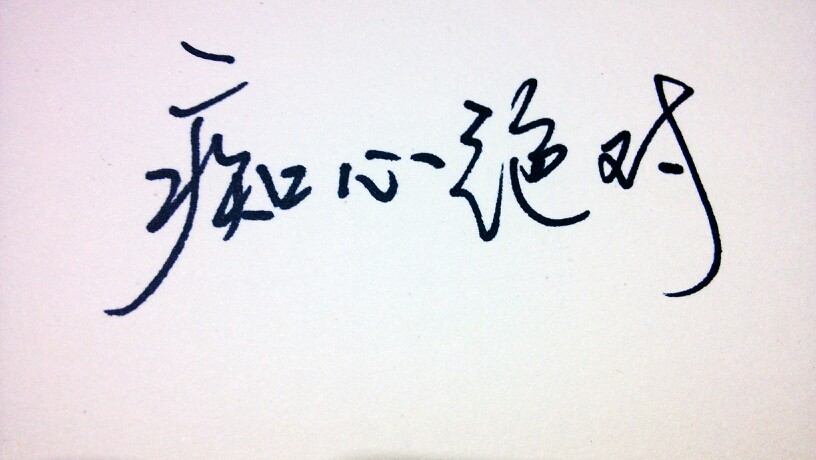 痴心绝对